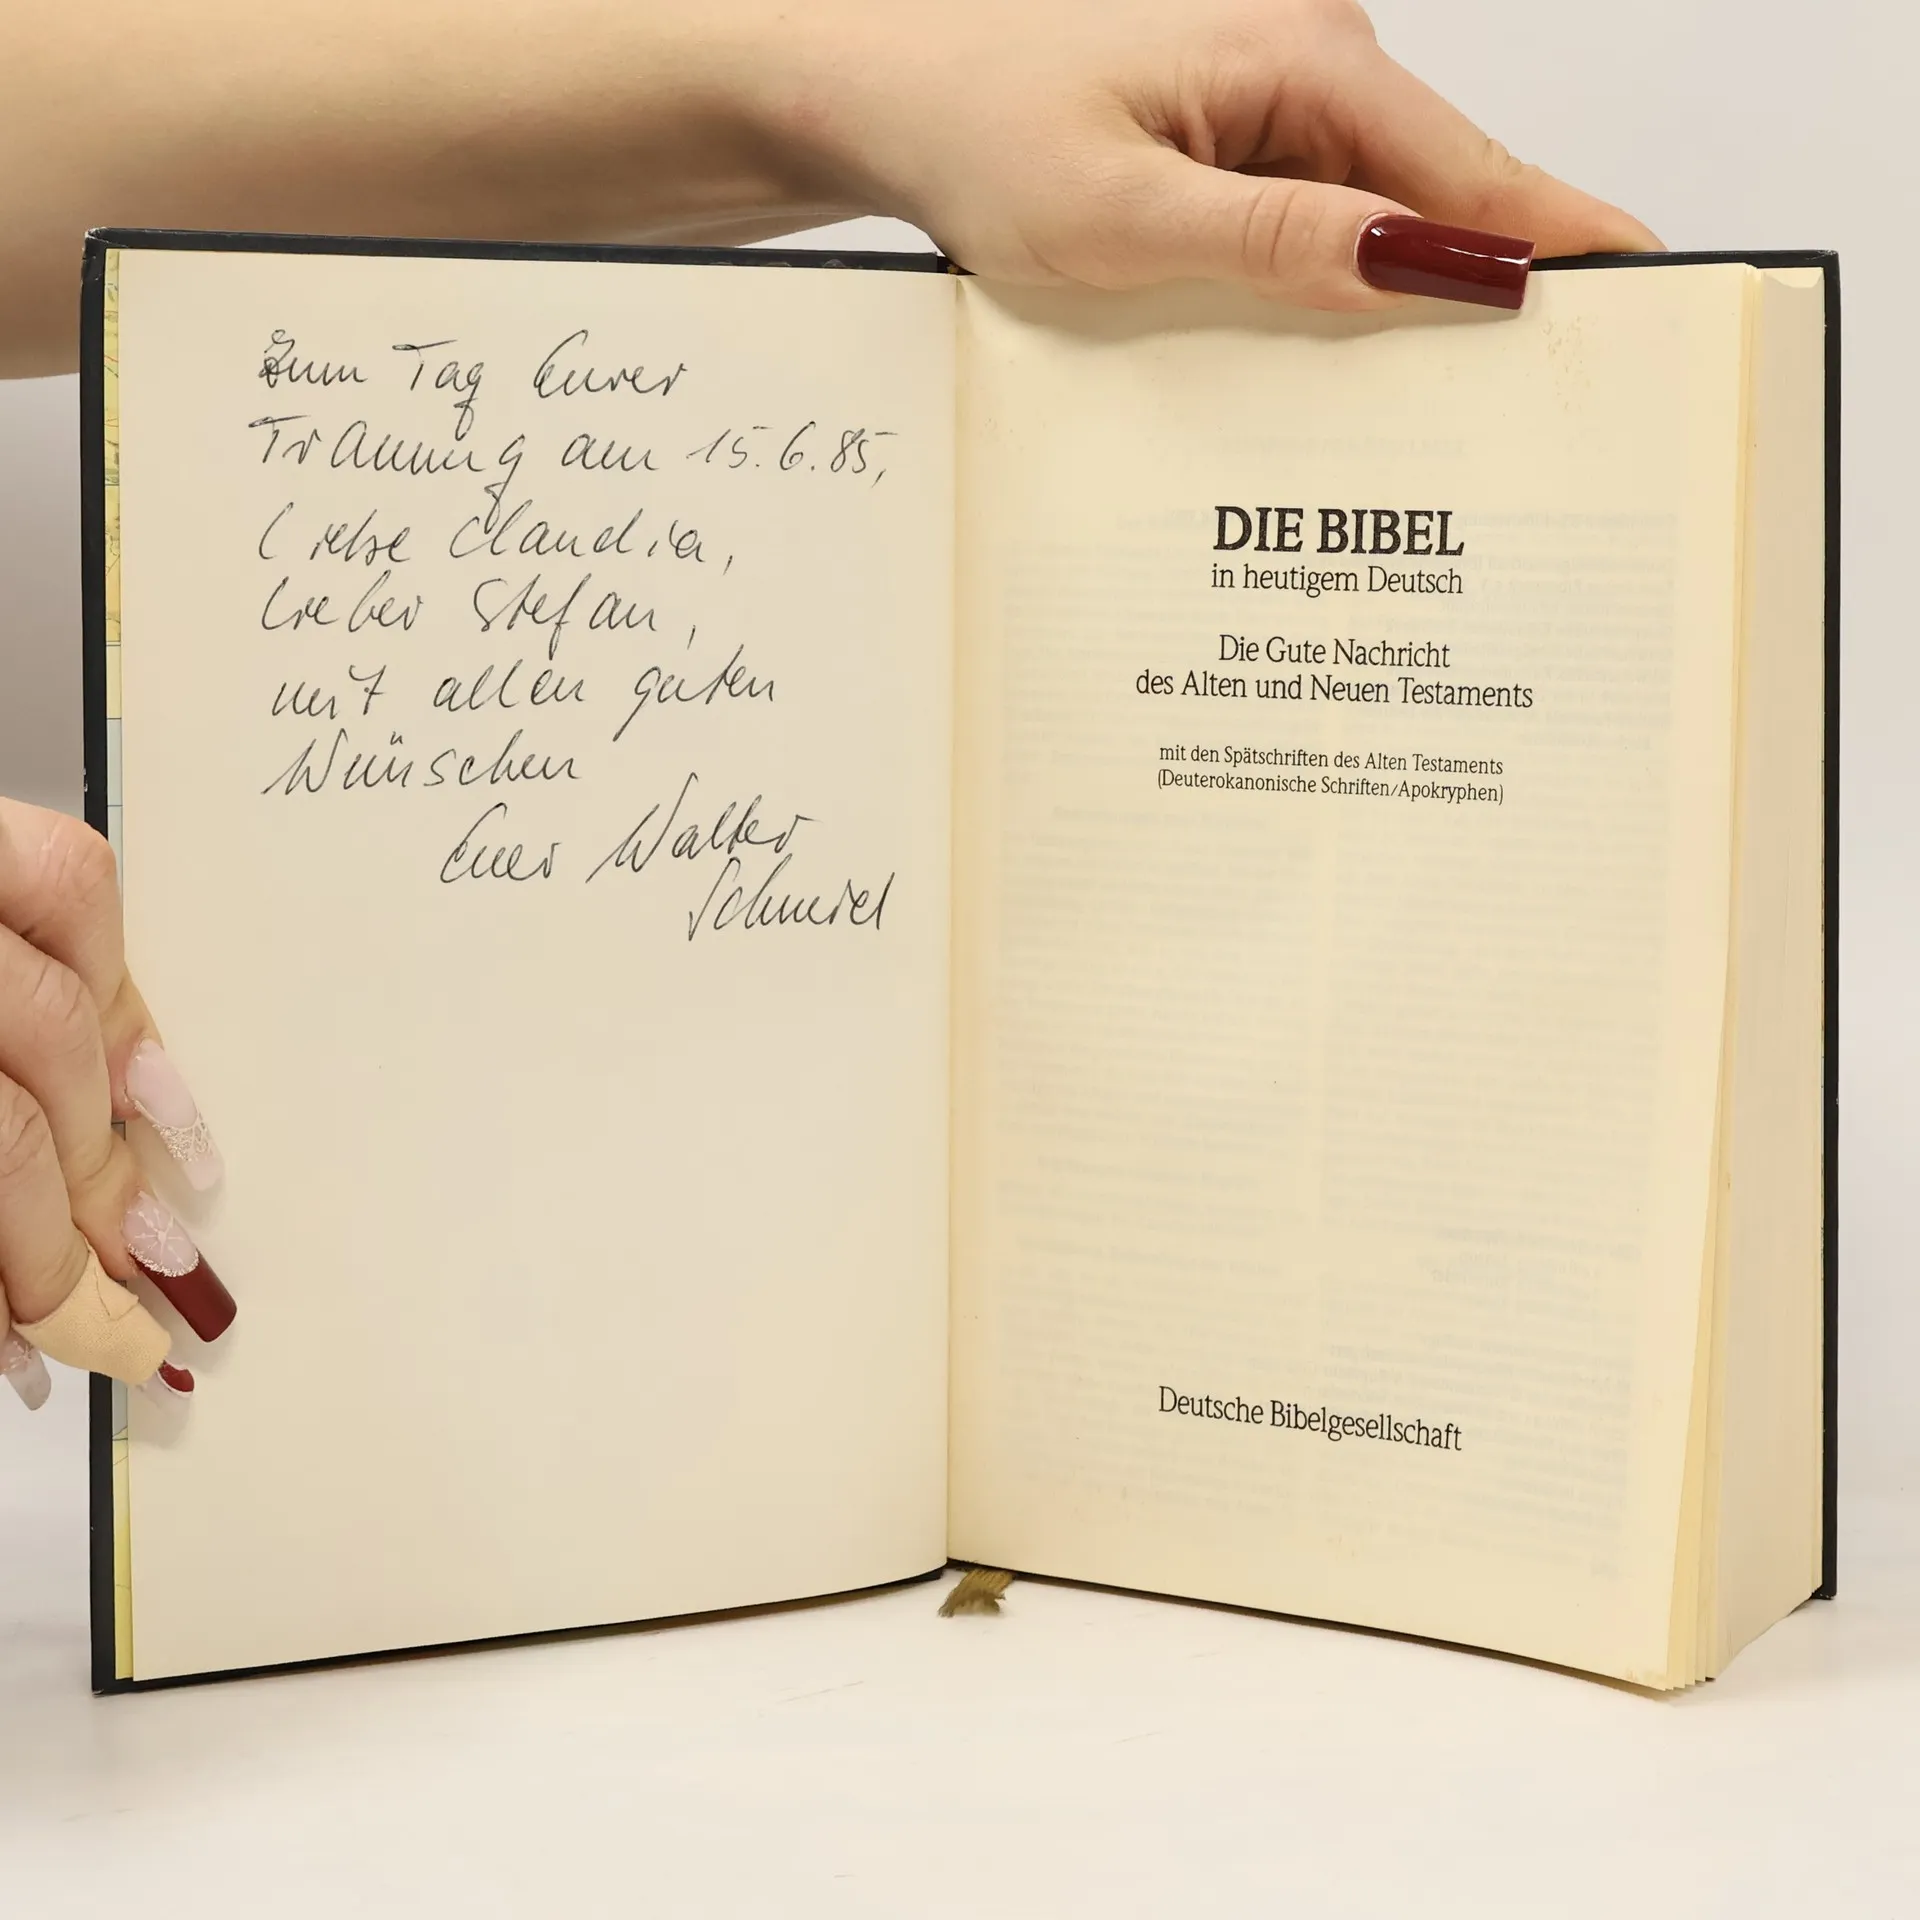 Zum Tag Eurer
Trauung am 15.6.85,
Liebe Claudia,
Lieber Stefan,
mit allen guten
Wünschen
Euer Walter
Schmiel
DIE BIBEL
in heutigem Deutsch
Die Gute Nachricht
des Alten und Neuen Testaments
mit den Spätschriften des Alten Testaments
(Deuterokanonische Schriften/Apokryphen)
Deutsche Bibelgesellschaft